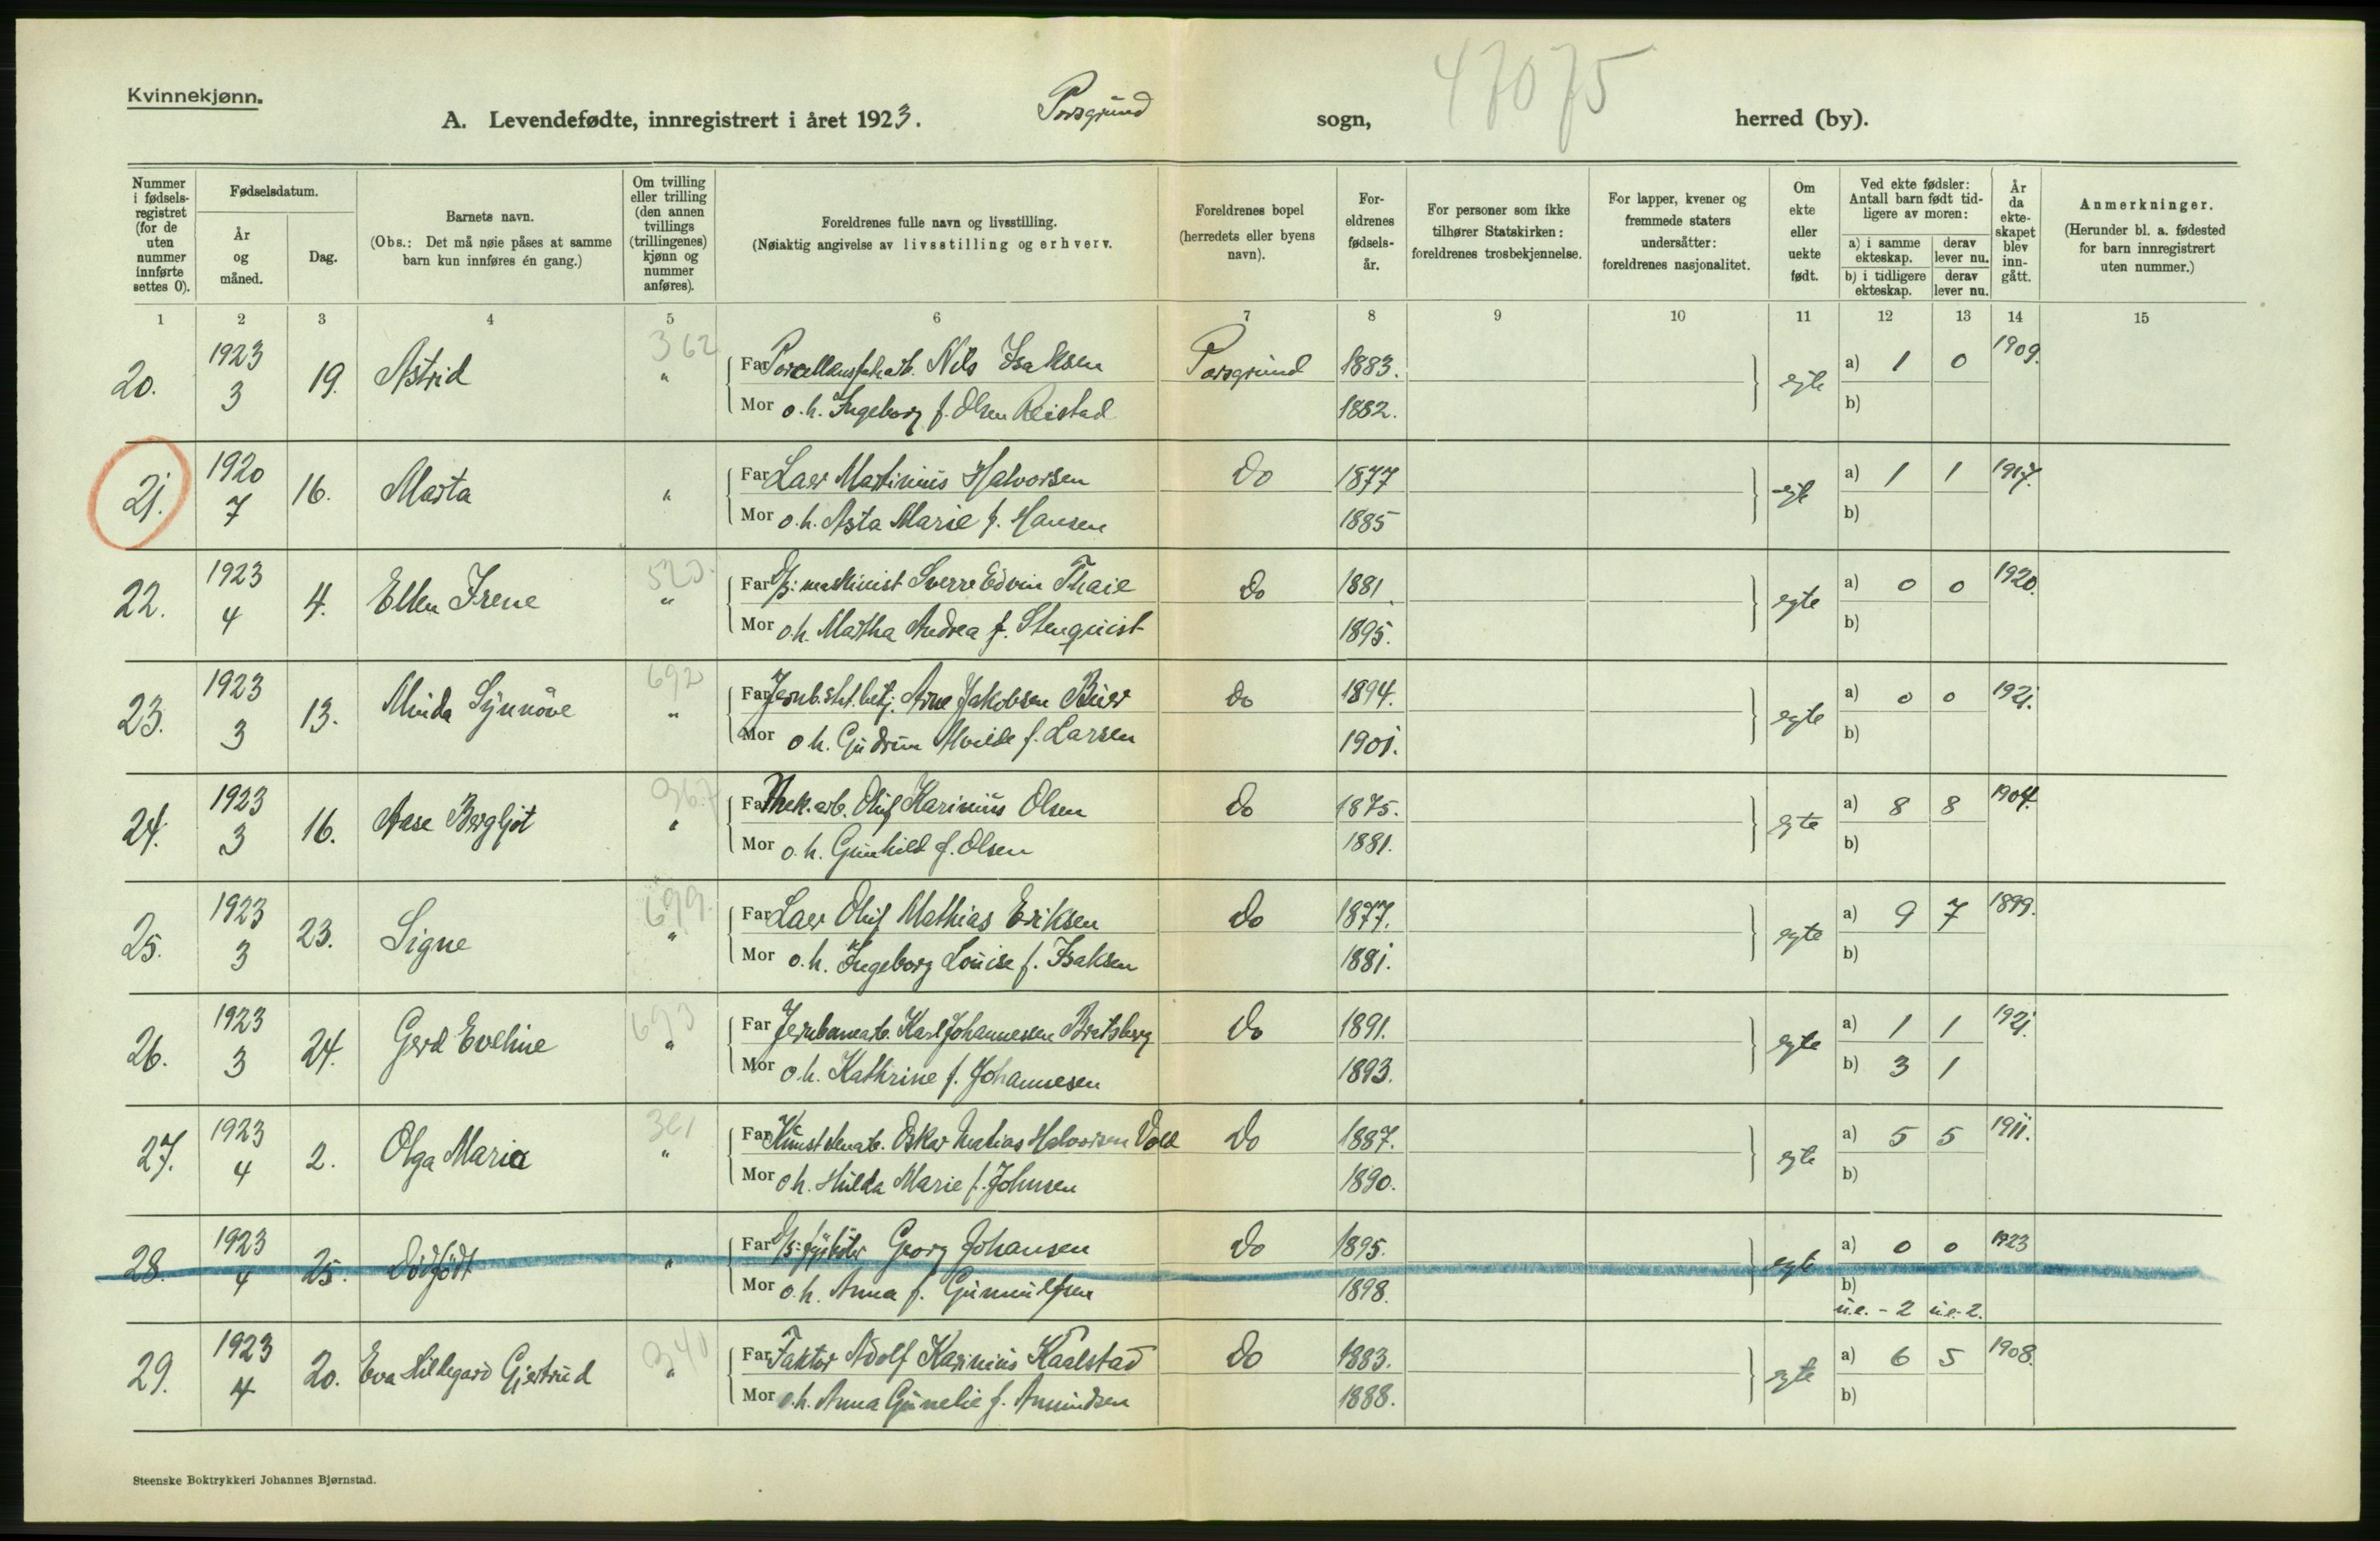 Kvinnekjønn.
A. Levendefødte, innregistrert i året 1923. Porsgrund sogn, herred (by).
47075
Nummer i fødselsregistret (for de uten nummer innførte settes 0).
Fødselsdatum.
År og måned.
Dag.
Barnets navn.
(Obs.: Det må nøie påses at samme barn kun innføres én gang.)
Om tvilling eller trilling (den annen tvillings (trillingenes) kjønn og nummer anføres).
Foreldrenes fulle navn og livsstilling.
(Nøiaktig angivelse av livsstilling og erhverv.
Foreldrenes bopel (herredets eller byens navn).
Foreldrenes fødselsår.
For personer som ikke tilhører Statskirken: foreldrenes trosbekjennelse.
For lapper, kvener og fremmede staters undersåtter: foreldrenes nasjonalitet.
Om ekte eller uekte født.
Ved ekte fødsler: Antall barn født tidligere av moren:
a) i samme ekteskap. derav lever nu.
b) i tidligere ekteskap. derav lever nu.
År da ekteskapet blev inngått.
Anmerkninger.
(Herunder bl. a. fødested for barn innregistrert uten nummer.)
1 2 3 4 5 6 7 8 9 10 11 12 13 14 15
20. 1923 3 19. Astrid 362 " Far Porcellensfab.arb. Nils Isaksen Porsgrund 1883. egte a) 1 0 1909.
Mor o.h. Ingeborg f. Olsen Reistad 1882. b)
21. 1920 7 16. Marta " Far Laer Martinius Halvorsen Do 1877 egte a) 1 1 1917.
Mor o.h. Asta Marie f. Hansen 1885 b)
22. 1923 4 4. Ellen Irene " Far D/s: maskinist Sverre Edvin Thaie Do 1881. egte a) 0 0 1920.
Mor o.h. Martha Andrea f. Stenquist 1895. b)
23. 1923 3 13. Minda Synnöve 692 " Far Jernb.st.betj. Arne Jakobsen Do 1894. egte a) 0 0 1921.
Mor o.h. Gudrun f. Larsen 1901. b)
24. 1923 3 16. Aase Bergljot 367 " Far Mek.arb. Oluf Karinius Olsen Do 1875. egte a) 8 8 1904.
Mor o.h. Gunhild f. Olsen 1881. b)
25. 1923 3 23. Signe 699. " Far Laer Oluf Mathias Eriksen Do 1877. egte a) 9 7 1899.
Mor o.h. Ingeborg Louise f. Isaksen 1881. b)
26. 1923 3 24. Gerd Eveline 693 " Far Jernbanearb. Karl Johannesen Bratsberg Do 1891. egte a) 1 1 1921.
Mor o.h. Kathrine f. Johannesen 1893. b) 3 1
27. 1923 4 2. Olga Maria 361 " Far Oskar Matias Halvorsen Vold Do 1887. egte a) 5 5 1911.
Mor o.h. Hilda Marie f. Johnsen 1890. b)
28. 1923 4 25. Dödfödt " Far D/s: fyrböter Georg Johansen Do 1895. egte a) 0 0 1923
Mor o.h. Anna f. Gunnulfsen 1898. b)
u.e. - 2 u.e. 2.
29. 1923 4 20. Eva Hildegard Gjertrud 340 " Far Faktor Adolf Karinius Kaalstad Do 1883. egte a) 6 5 1908.
Mor o.h. Anna Gunelie f. Amundsen 1888. b)
Steenske Boktrykkeri Johannes Bjørnstad.